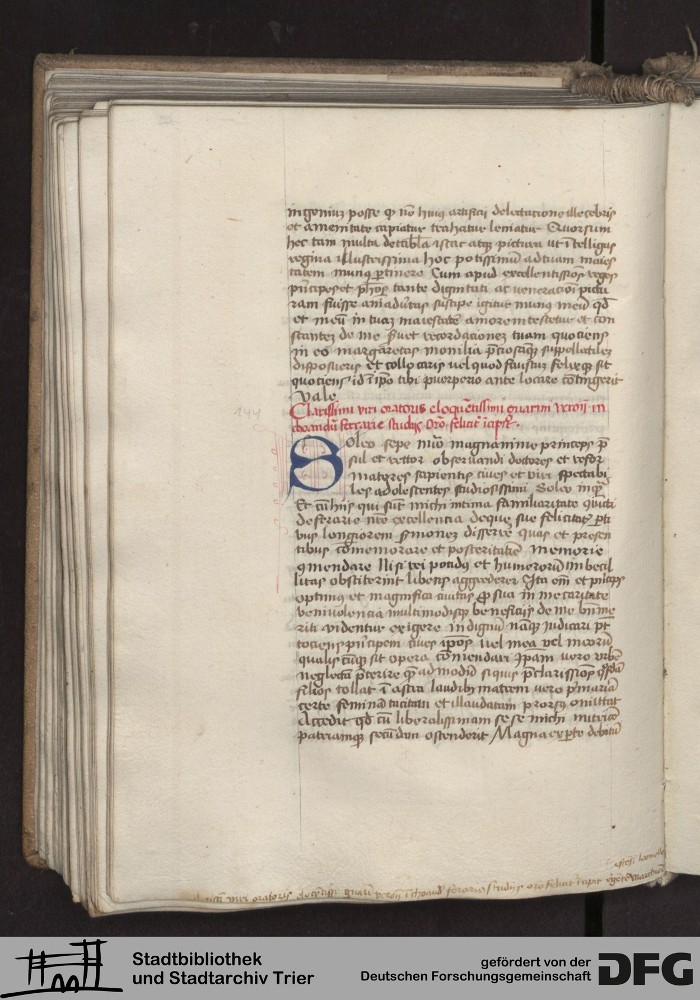 ingenium posse qͥ nō huiꝰ artificii delectatione illecebris
et amenitate capiatur trahatur leniatur Quorsum
hec tam multa de atqꝫ pictura ut ītelligas
regina illustrissima hoc potissimū ad tuam maies
tatem munꝰ ꝑtinere Cum apud excellentissimos reges
pͥncipes et pħos tante dignitati ac veneracōi pictu
ram fuisse suscipe igitur munꝰ meū qd
et meū in tuaꝫ maiestatē amorem testetur et con
stanteꝫ de me vet recordacioneꝫ tuam quociens
in eo margaretas monilia p̄ciosaqꝫ suppellectileꝫ
disposueris et collocaris vel quod faustū felixqꝫ sit
quociens id īpō tibi puerperio ante locare cōtingerit
Vale
Clarissimi viri oratoris eloquētissimi guarini veroñ in
choandū ferrarie studiꝫ Oro feliciter īcipit
Soleo sepe mͥo magnanime princeps p̄
sul et rector observandi doctores et
sapientis cives et viri spectabi
les adolescentes studiosissimi Soleo inqͣ
Et cū hiis qui sunt michi intima familiaritate
de ferrarie nr̄e excellencia deqꝫ sue felicitatꝭ
bus longiorem sermoneꝫ disserere quas et presen
tibus cōmemorare et posteritatē memorie
ꝯmendare Nisi rei pondus et humerorū imbecil
litas obstiterint libens aggrederer Ita em̄ et pͥnceps
optimus et magnifica civitas ꝓ sua in me caritate
venivolencia multimodisqꝫ beneficiis de me bn̄ me
riti videntur exigere indignū naqꝫ iudicari pt̄
tociens pͥncipem cives ipōs vel mea vel meorū
qualiscūqꝫ sit opera cōmendari Ipam vero urbē
neglectū p̄terire qͣ admodū siquis p̄clarissios
filios tollat ī astra laudibꝫ matrem vero pͥmariā
certe feminā tacitam et illaudatam prorsus omittat
Accedit qd cū liberalissimam sese michi nutricē
patriamqꝫ secūdam ostenderit Magna ex ꝑte debitū
viri oratoris guarī veroñ ferrarie studiis oro feliciter īcipit
144
Stadtbibliothek
und Stadtarchiv Trier
gefördert von der
Deutschen Forschungsgemeinschaft
DFG